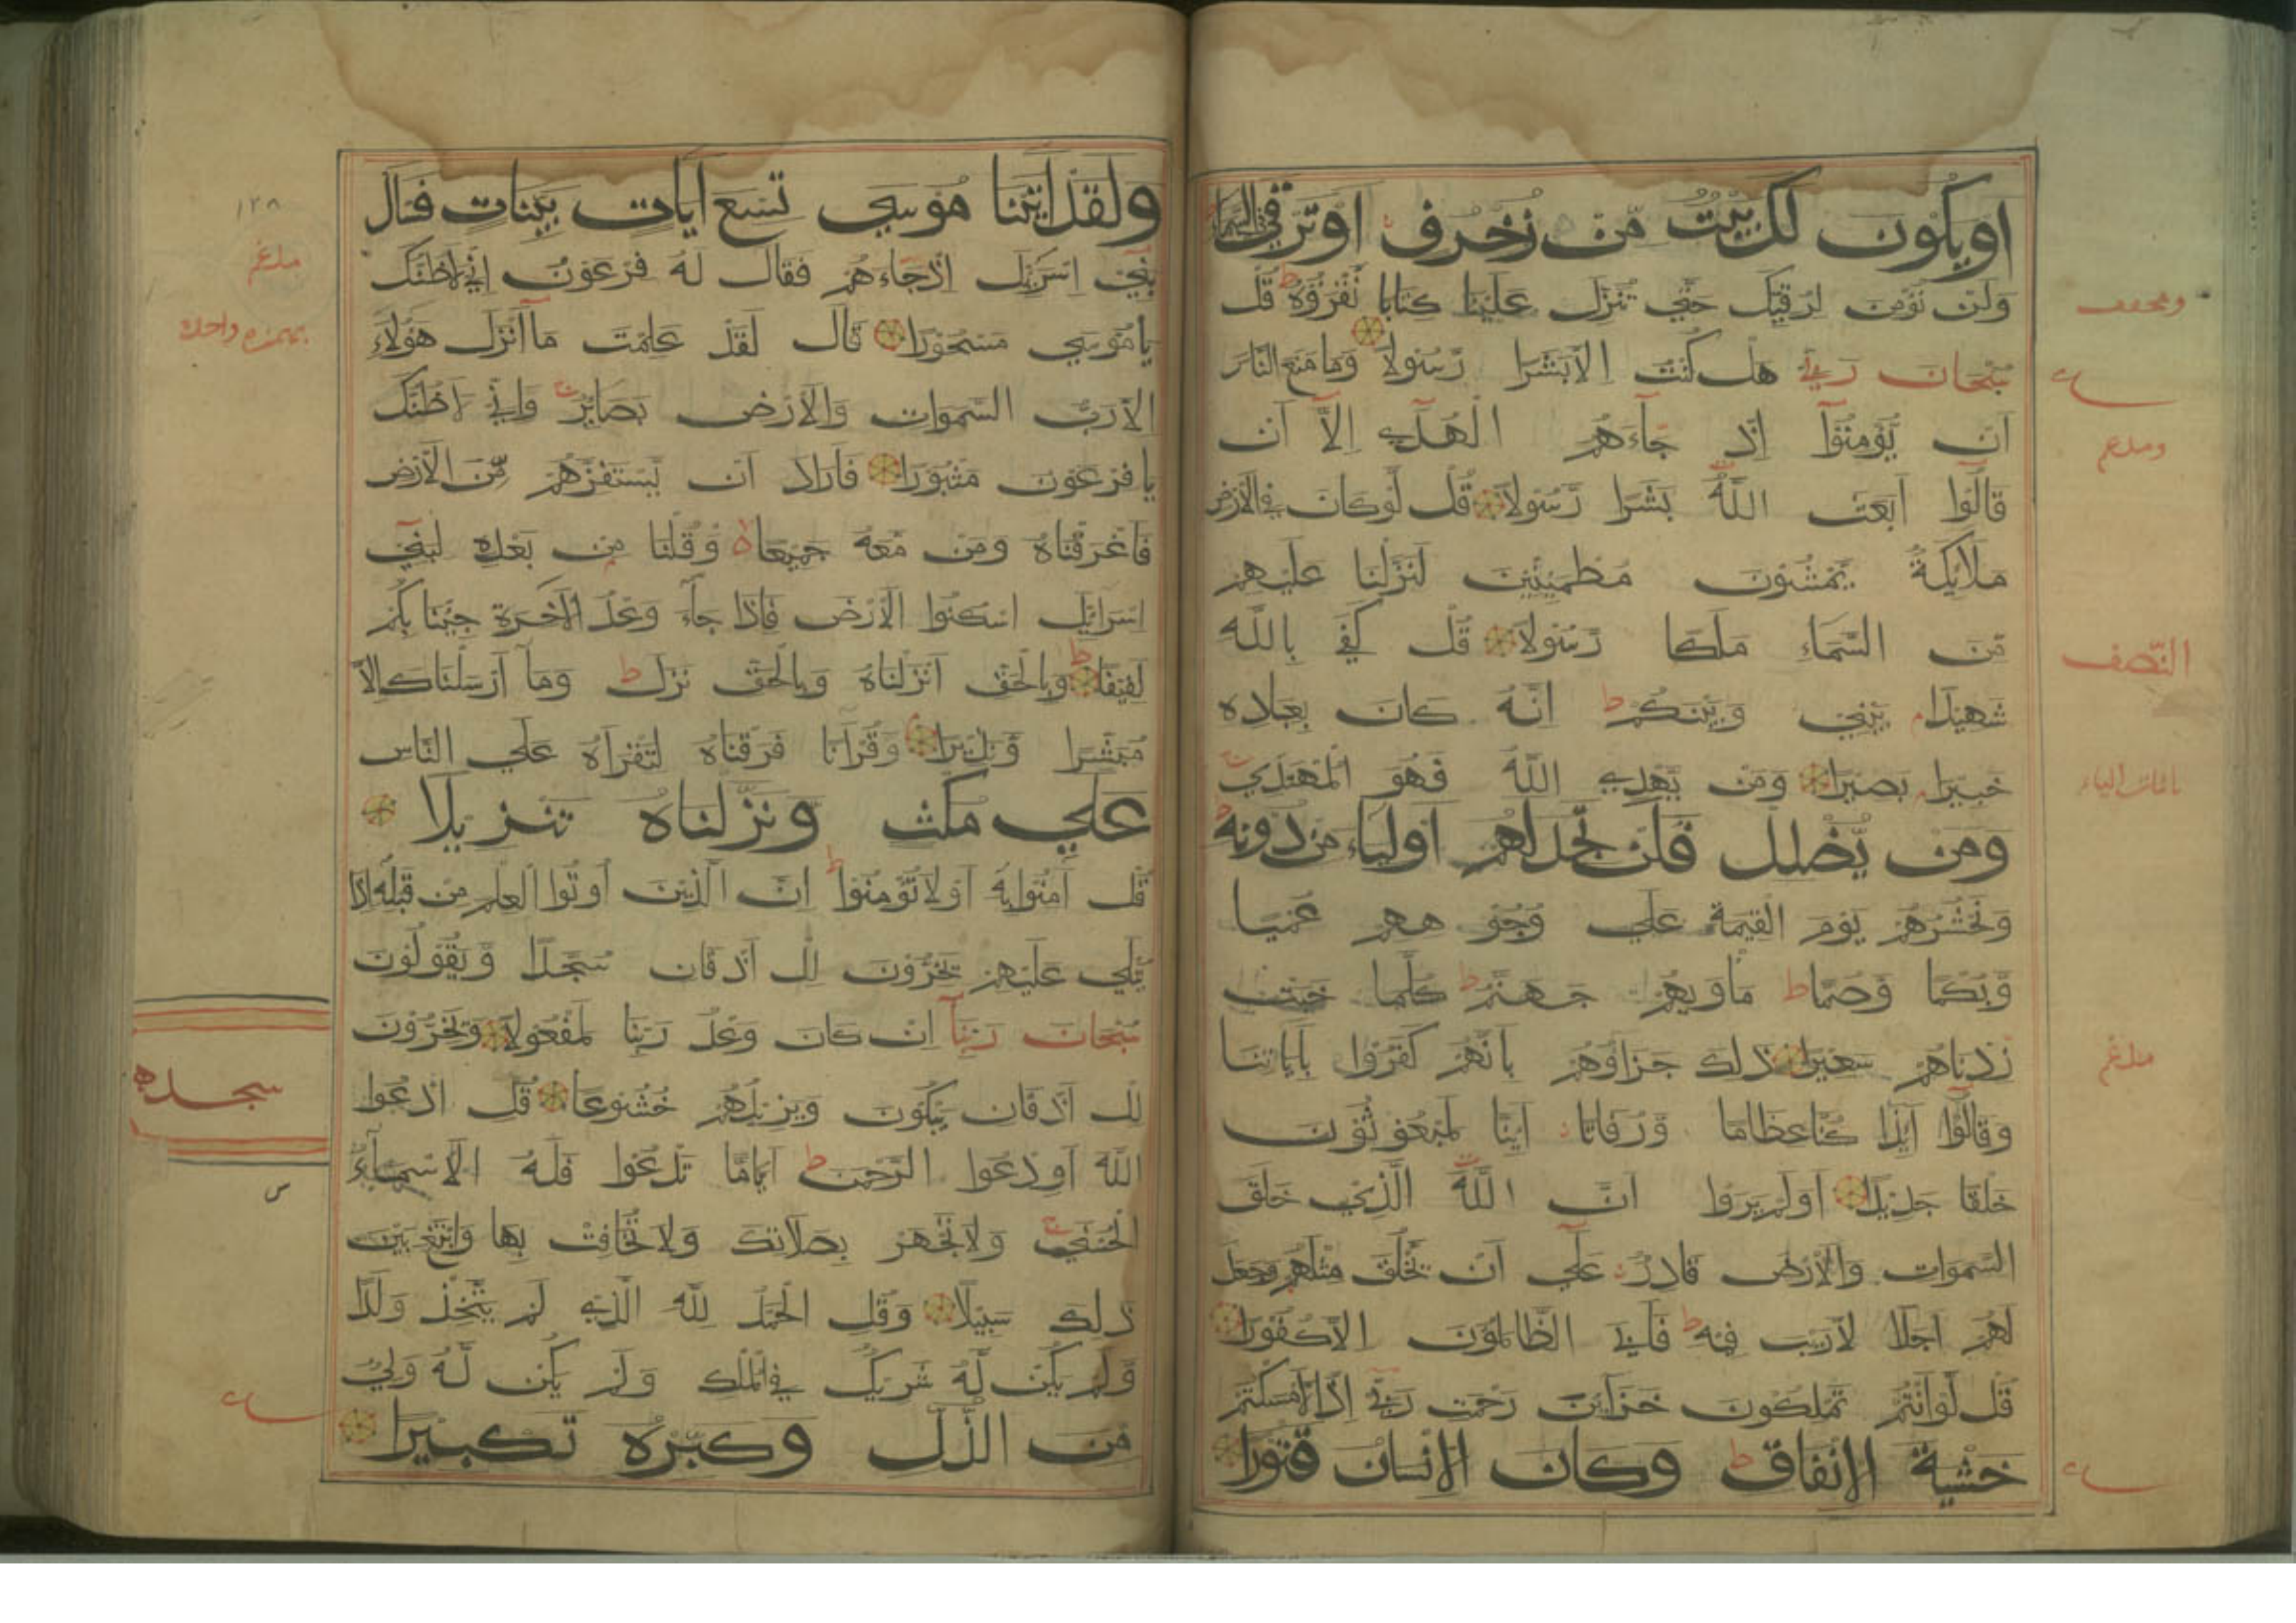 او يكون لك بيت من زخرف او ترقى في السماء
ولن نؤمن لرقيك حتي تنزل علينا كتابا نقرؤه ط قل
سبحان ربي هل كنت الا بشرا رسولا وما منع الناس
ان يؤمنوا اذ جاءهم الهدي الا ان
قالوا ابعث الله بشرا رسولا قل لو كان في الارض
ملائكة يمشون مطمئنين لنزلنا عليهم
من السماء ملكا رسولا قل كفي بالله
شهيدا بيني وبينكم ط انه كان بعباده
خبيرا بصيرا ومن يهدي الله فهو المهتدي
ومن يضلل فلن تجد لهم اولياء من دونه ط
ونحشرهم يوم القيمة علي وجوههم عميا
وبكما وصما ط ماويهم جهنم ط كلما خبت
زدناهم سعيرا ذلك جزاؤهم بانهم كفروا باياتنا
وقالوا ائذا كنا عظاما ورفاتا ائنا لمبعوثون
خلقا جديدا اولم يروا ان الله الذي خلق
السموات والارض قادر علي ان يخلق مثلهم وجعل
لهم اجلا لا ريب فيه ط فابي الظالمون الا كفورا
قل لو انتم تملكون خزائن رحمت ربي اذا لامسكتم
خشية الانفاق ط وكان الانسان قتورا
النصف
باثبات الياء
مدغم
ولقد اتينا موسي تسع ايات بينات فسال
بني اسريل اذ جاءهم فقال له فرعون اني لاظنك
يا موسي مسحورا قال لقد علمت ما انزل هؤلاء
الا رب السموات والارض بصاير واني لاظنك
يا فرعون مثبورا فاراد ان يستفزهم من الارض
فاغرقناه ومن معه جميعا وقلنا من بعده لبني
اسرائيل اسكنوا الارض فاذا جاء وعد الاخرة جئنا بكم
لفيفا ط وبالحق انزلناه وبالحق نزل ط وما ارسلناك الا
مبشرا ونذيرا وقرانا فرقناه لتقراه علي الناس
علي مكث ونزلناه تنزيلا
قل امنوا به او لا تؤمنوا ط ان الذين اوتوا العلم من قبله اذا
يتلي عليهم يخرون للاذقان سجدا ويقولون
سبحان ربنا ان كان وعد ربنا لمفعولا ويخرون
للاذقان يبكون ويزيدهم خشوعا قل ادعوا
الله او ادعوا الرحمن ط اياما تدعوا فله الاسماء
الحسني ولا تجهر بصلاتك ولا تخافت بها وابتغ بين
ذلك سبيلا وقل الحمد لله الذي لم يتخذ ولدا
ولم يكن له شريك في الملك ولم يكن له ولي
من الذل وكبره تكبيرا
١٢٨
مدغم
بهمزه واحده
سجده